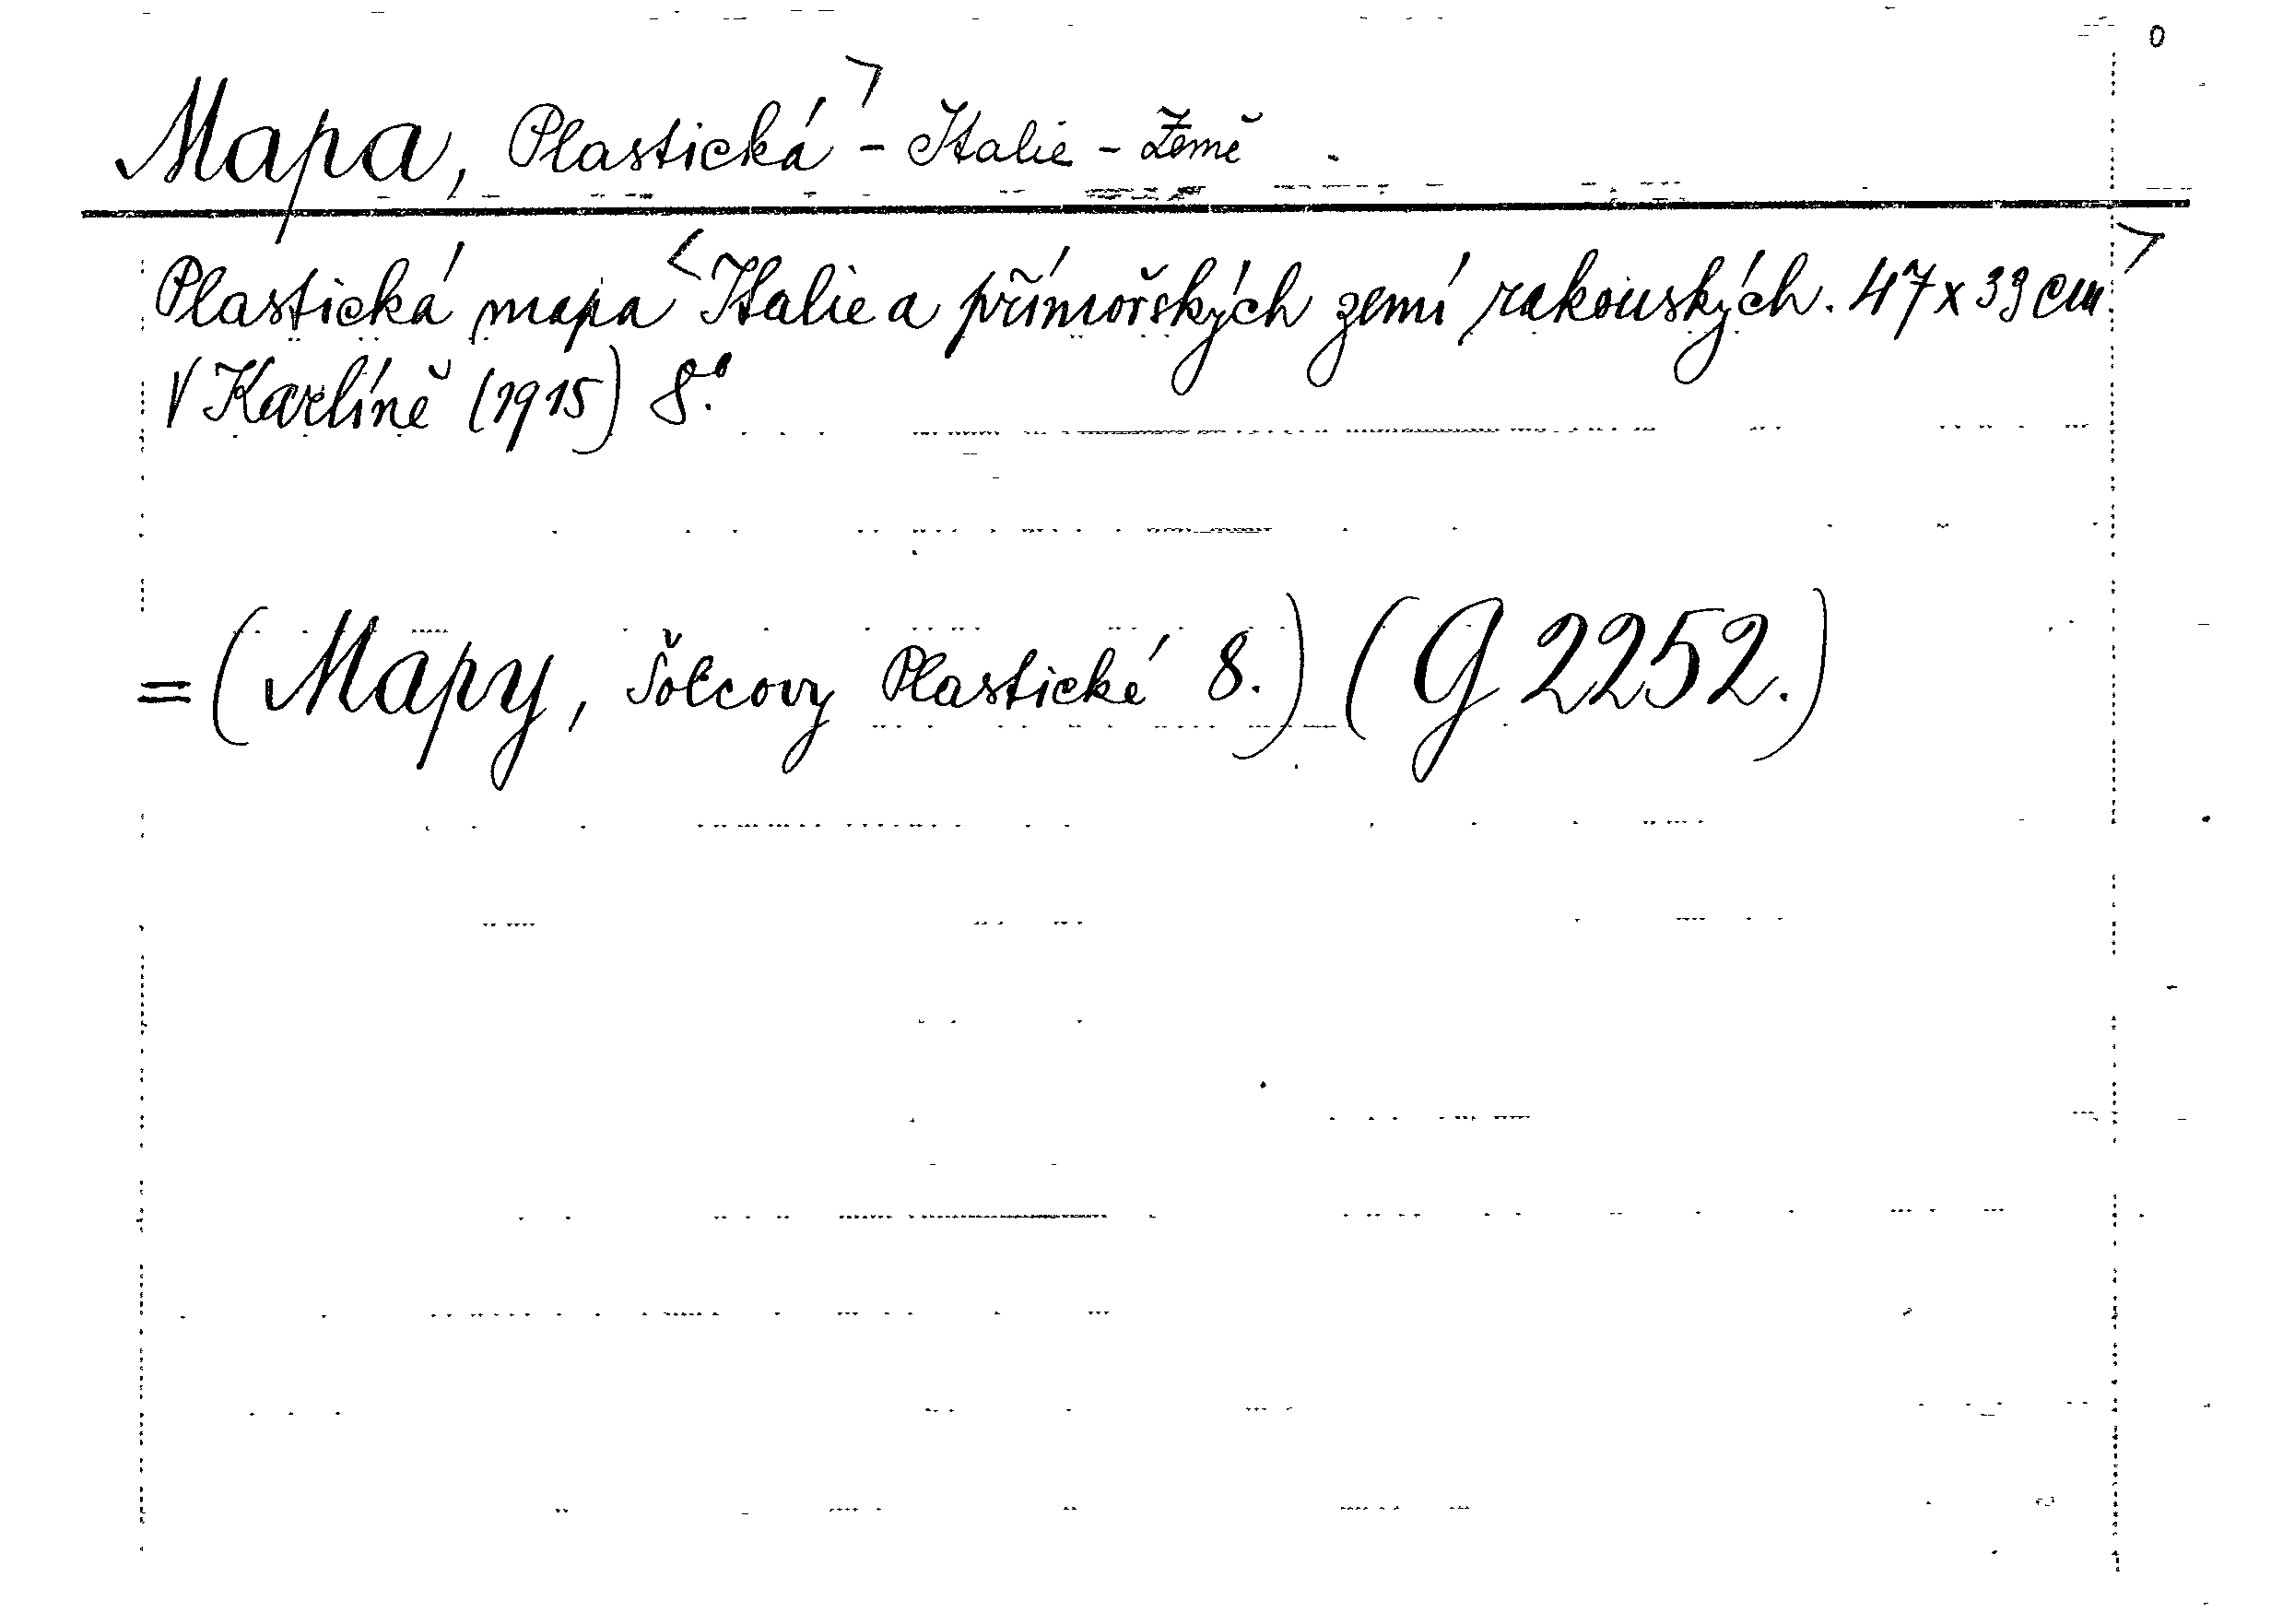 0
Mapa, Plastická ̚ - Italie - Země
Plastická mapa <Italie a přímořských zemí rakouských. 47 x 33 cm>
V Karlíně (1915) 8.º
= (Mapy, Šolcovy Plastické 8.) (G 2252.)